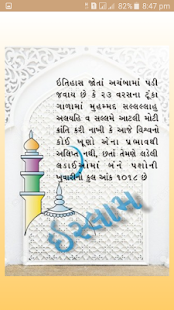 82% 8:47 pm
ઇતિહાસ જોતાં અચંબામાં પડી
જવાય છે કે ૨૩ વરસના ટૂંકા
ગાળામાં મુહમ્મદ સલ્લલ્લાહુ
અલયહિ વ સલ્લમે આટલી મોટી
ક્રાંતિ કરી નાખી કે આજે વિશ્વનો
કોઈ ખૂણો એના પ્રભાવથી
અલિપ્ત નથી, છતાં તેમણે લડેલી
લડાઈઓમાં બંને પક્ષોની
ખુવારીનો કુલ આંક ૧૦૧૮ છે
ઈસ્લામ